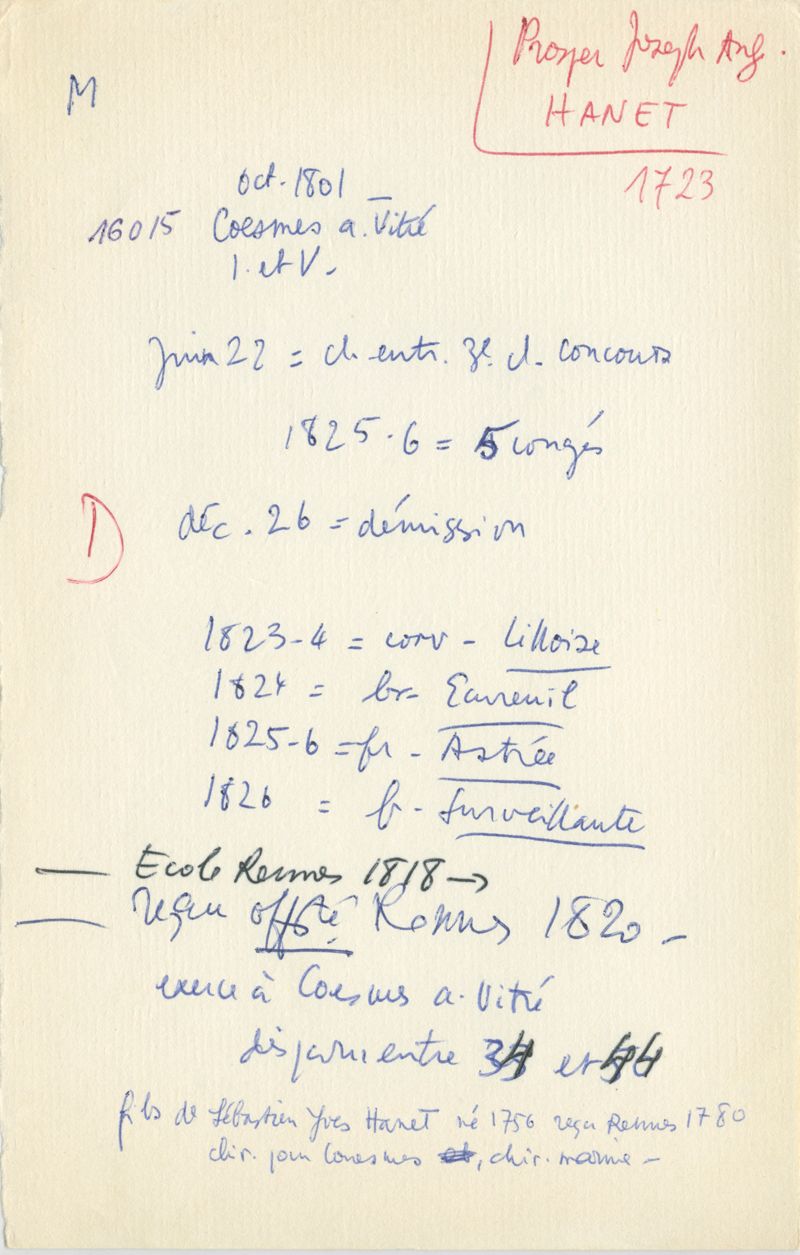 M
Prosper Joseph Ang.
HANET
1723
oct. 1801 -
16015 Coesmes a. Vitré
I. et V.
juin 22 = ch. entr. 3e cl. concours
1825-6 = 5 congés
D
déc. 26 = démission
1823-4 = corv - Lilloise
1824 = br- Ecureuil
1825-6 = fr - Astrée
1826 = fr - Surveillante
Ecole Rennes 1818 →
reçu offté Rennes 1820 -
exerce à Coesmes a. Vitré
disparu entre 34 et 44
fils de Sébastien Yves Hanet né 1756 reçu Rennes 1780
chir. pour Couesmes, chir. marine -